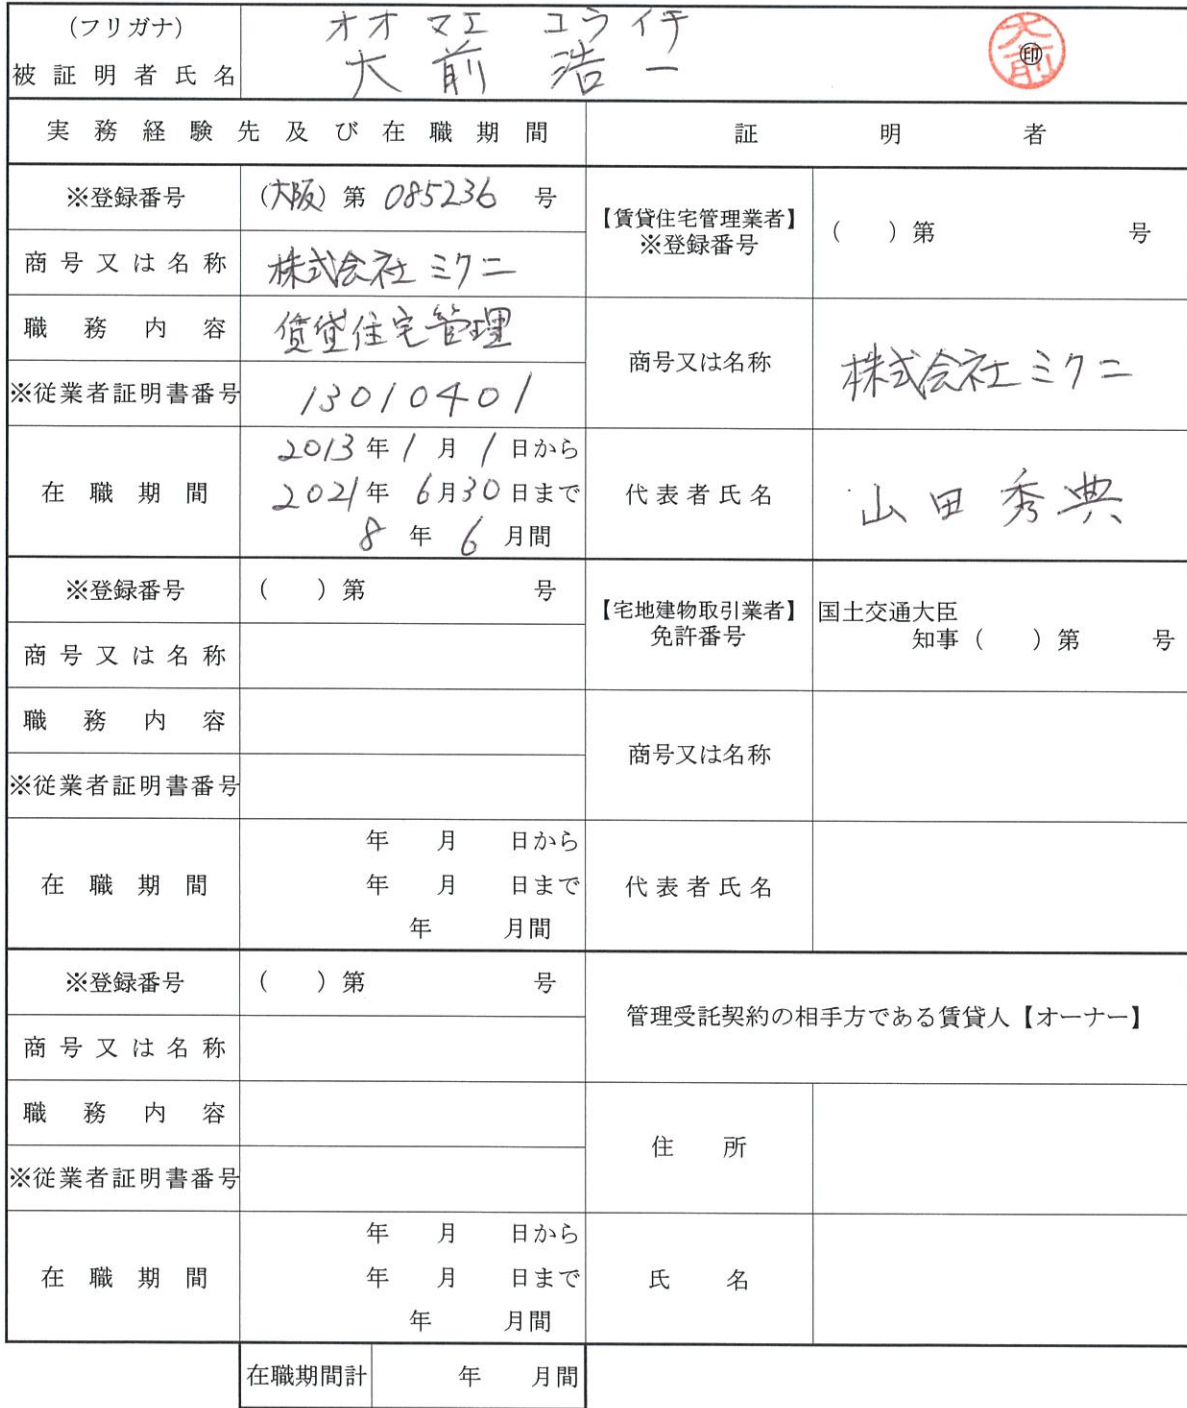 (フリガナ) オオマエ コライチ
被証明者氏名 大前 浩一 大前 ㊞
実務経験先及び在職期間 証明者
※登録番号 (大阪) 第 085236 号 【賃貸住宅管理業者】 ※登録番号 ( ) 第 号
商号又は名称 株式会社ミクニ
職務内容 賃貸住宅管理 商号又は名称 株式会社ミクニ
※従業者証明書番号 13010401
在職期間 2013年1月1日から 代表者氏名 山田秀典
2021年6月30日まで
8年6月間
※登録番号 ( ) 第 号 【宅地建物取引業者】 免許番号 国土交通大臣
知事 ( ) 第 号
商号又は名称
職務内容 商号又は名称
※従業者証明書番号
在職期間 年 月 日から 代表者氏名
年 月 日まで
年 月間
※登録番号 ( ) 第 号 管理受託契約の相手方である賃貸人【オーナー】
商号又は名称
職務内容 住所
※従業者証明書番号
在職期間 年 月 日から 氏名
年 月 日まで
年 月間
在職期間計 年 月間